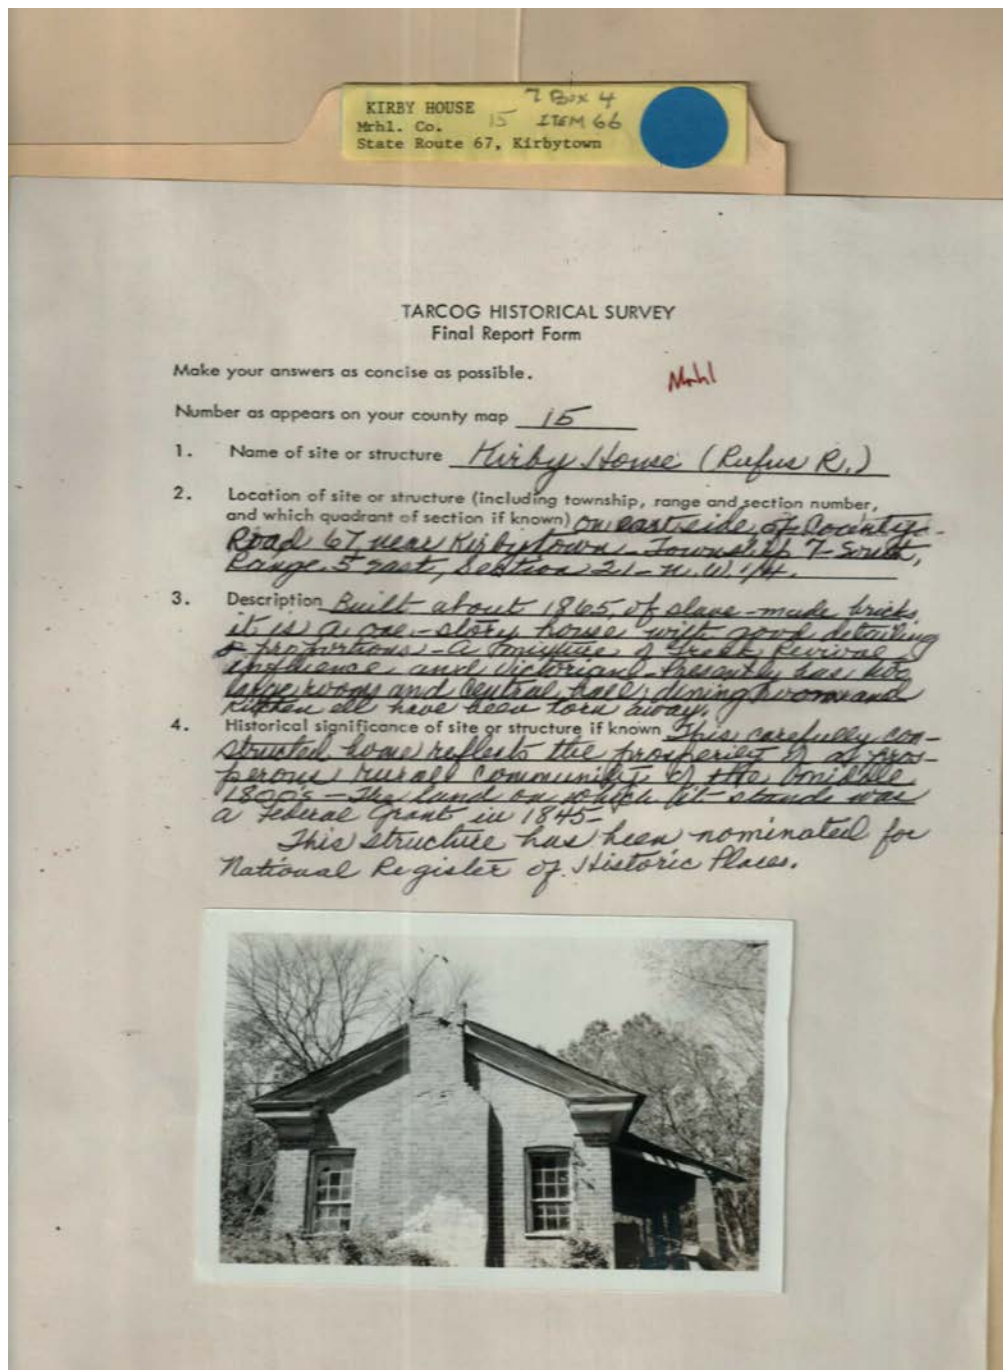 7 Box 4
KIRBY HOUSE 15 ITEM 66
Mrhl. Co.
State Route 67, Kirbytown
TARCOG HISTORICAL SURVEY
Final Report Form
Make your answers as concise as possible.
Mrhl
Number as appears on your county map 15
1. Name of site or structure Kirby House (Rufus R.)
2. Location of site or structure (including township, range and section number,
and which quadrant of section if known) on east side of County
Road 67 near Kirbytown - Township 7-South,
Range 5 east, Section 21 - N.W. 1/4.
3. Description Built about 1865, of slave-made bricks
it is a one-story house with good detailing
& proportions - A mixture of Greek Revival
influence and Victorian - Presently has two
large rooms and central hall; dining room and
kitchen ell have been torn away.
4. Historical significance of site or structure if known This carefully con-
structed home reflects the prosperity of a pros-
perous rural community of the middle
1800's - The land on which it stands was
a Federal Grant in 1845-
This structure has been nominated for
National Register of Historic Places.